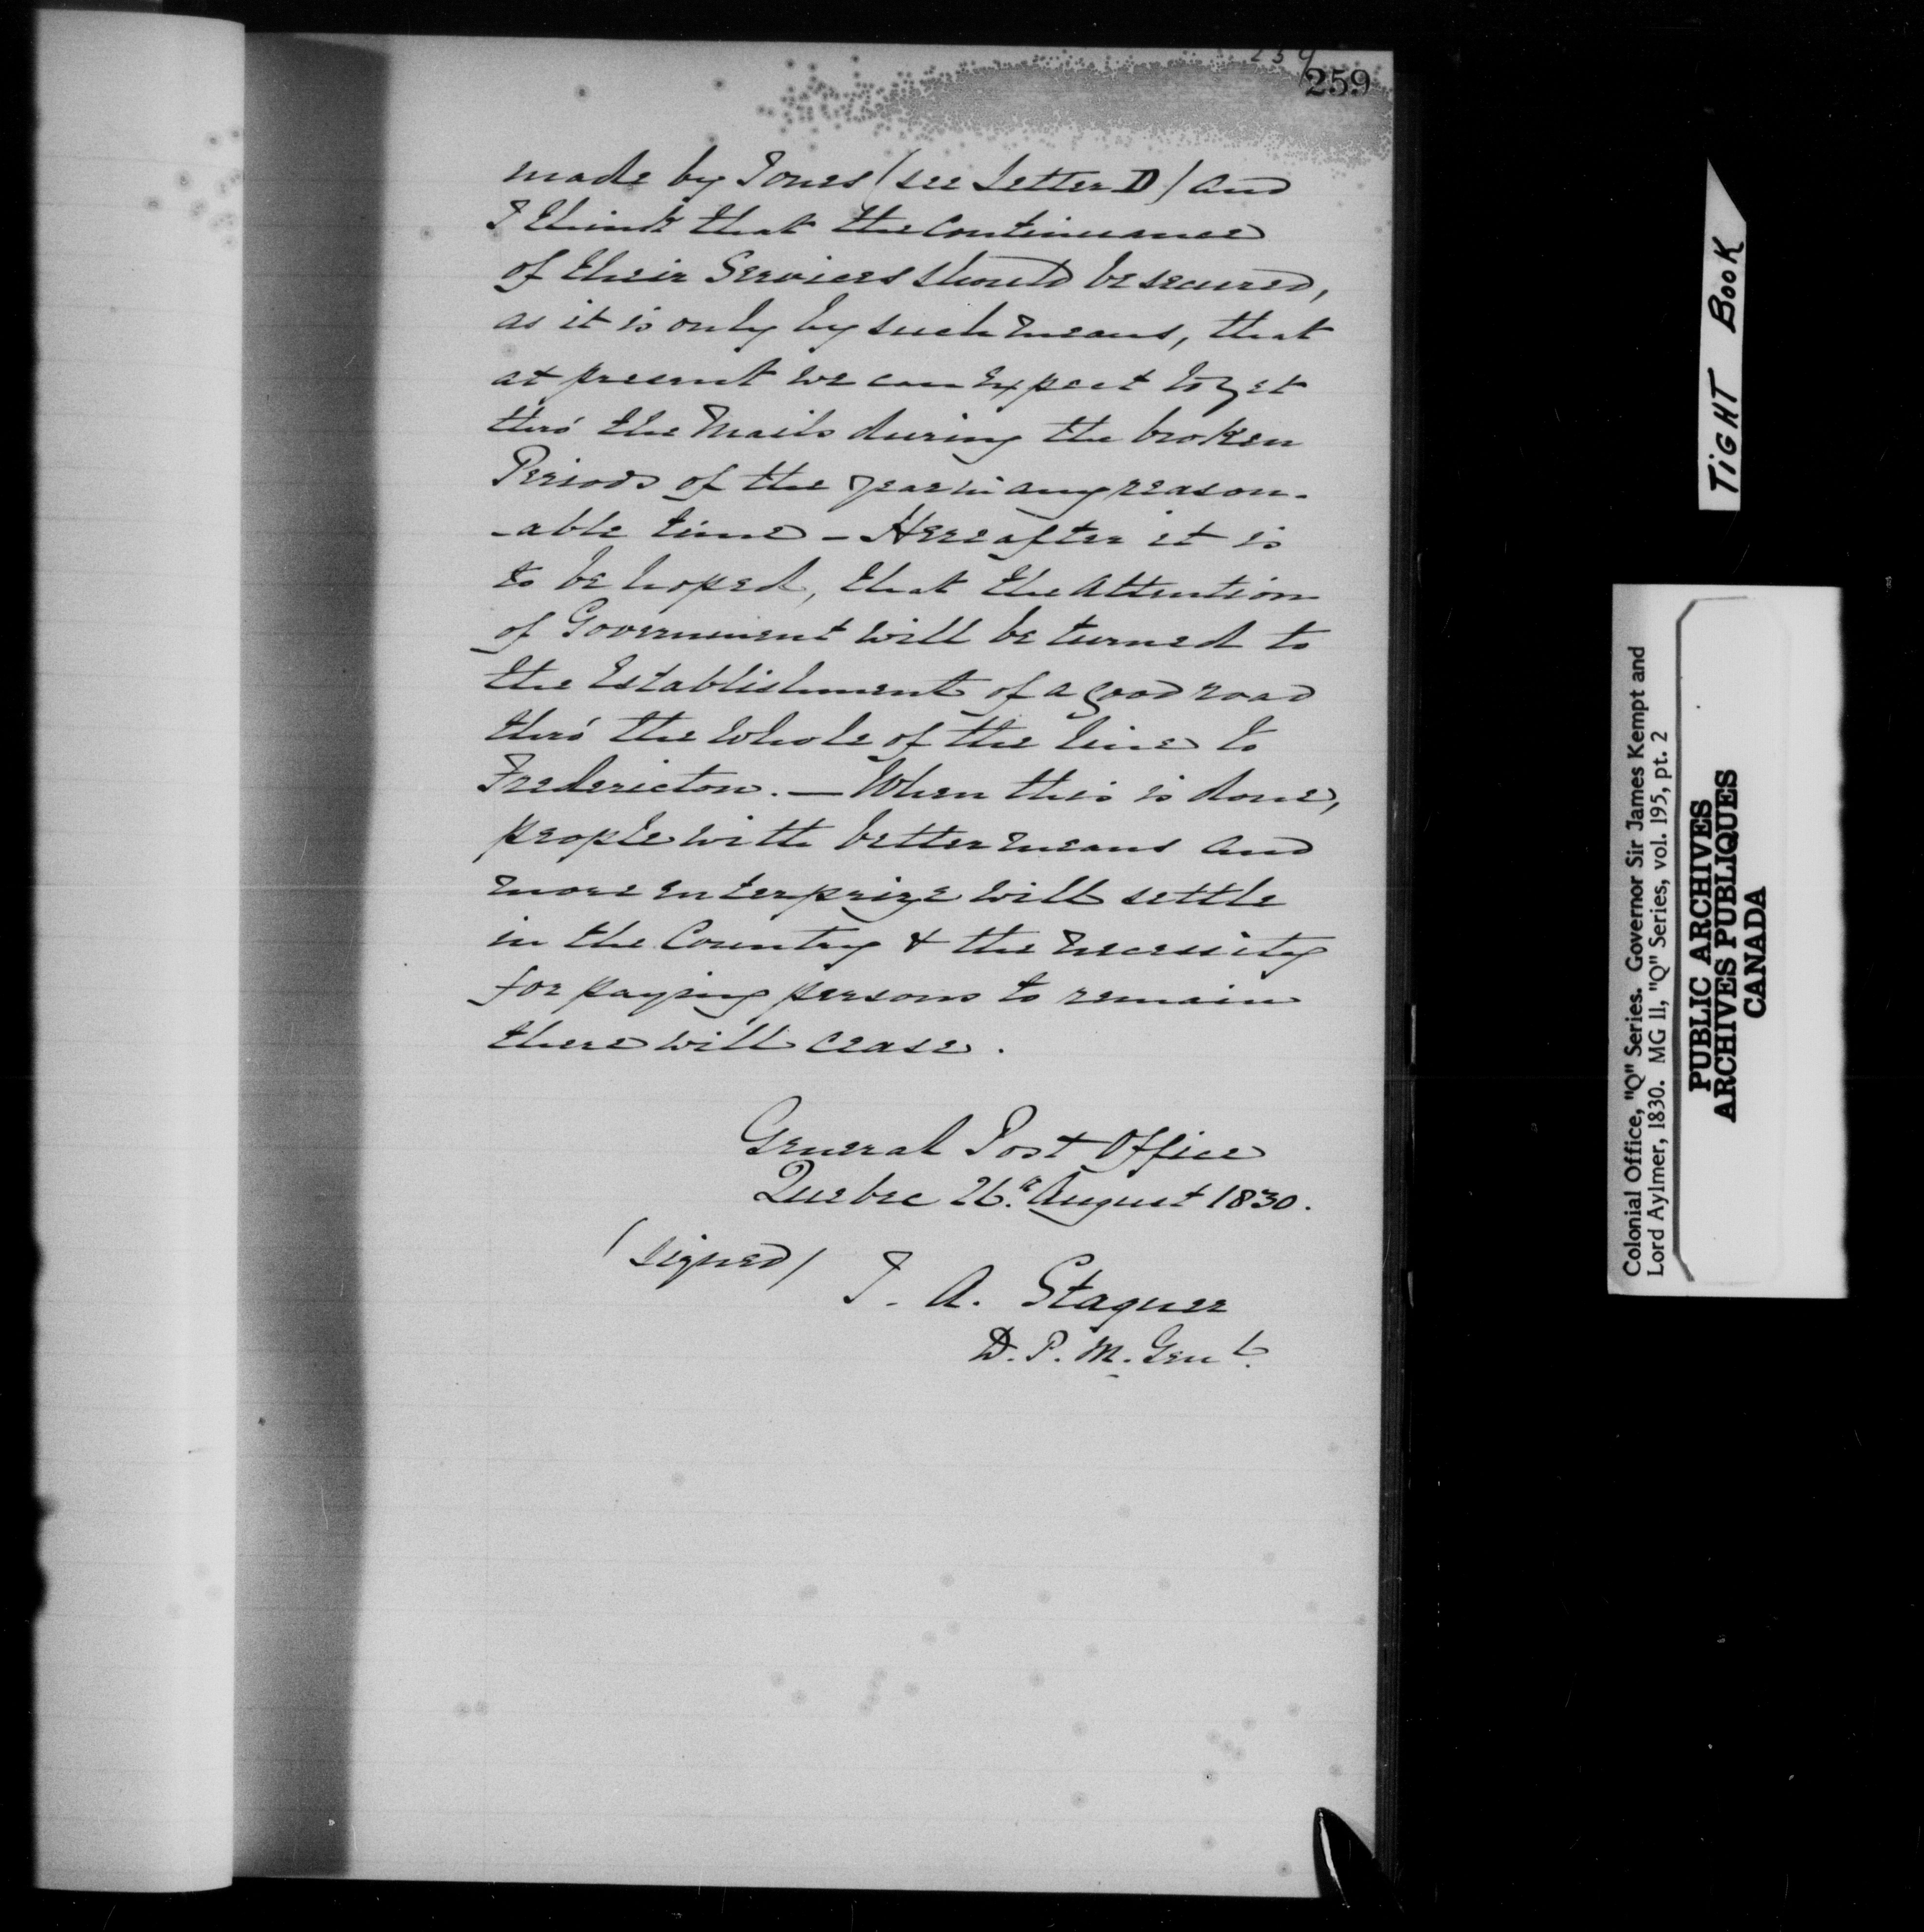 259
259
made by Jones (see Letter D) and
I think that the continuance
of their Services should be secured,
as it is only by such means, that
at present we can expect to get
thro' the Mails during the broken
Periods of the year in any reason-
-able time - Hereafter it is
to be hoped, that the Attention
of Government will be turned to
the Establishment of a good road
thro' the whole of the line to
Fredericton. — When this is done,
people with better means and
more enterprize will settle
in the Country & the necessity
for paying persons to remain
there will cease.
General Post Office
Quebec 26.th August 1830.
(signed) T. A. Stayner
D. P. M. Genl.
TIGHT BOOK
Colonial Office, "Q" Series. Governor Sir James Kempt and
Lord Aylmer, 1830. MG 11, "Q" Series, vol. 195, pt. 2
PUBLIC ARCHIVES
ARCHIVES PUBLIQUES
CANADA